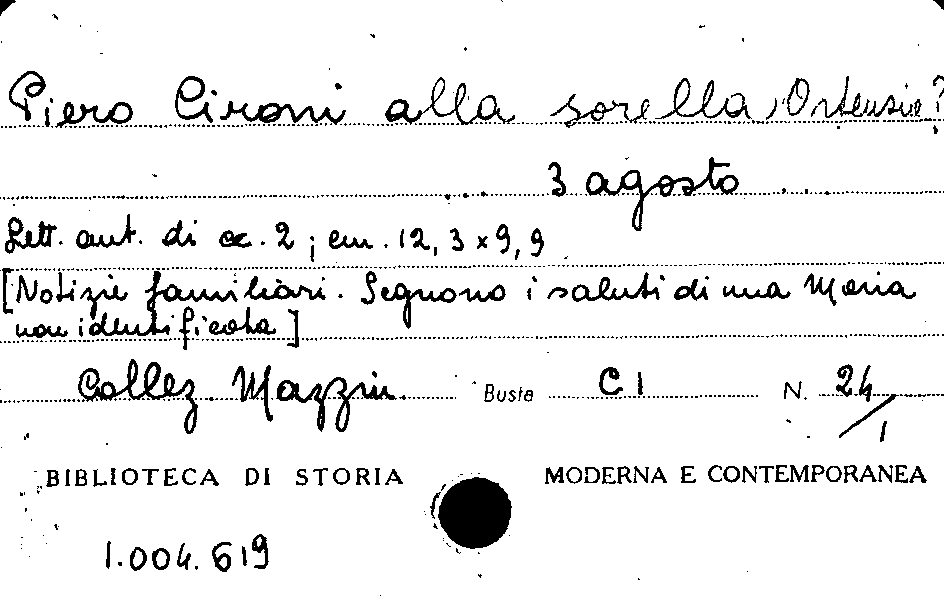 Piero Cironi alla sorella Ortensia?
... 3 agosto ...
Lett. aut. di cc. 2 ; cm. 12,3 x 9,9
[Notizie familiari. Seguono i saluti di una Maria
non identificata]
Collez. Mazzin. Busta C I N. 24/1
BIBLIOTECA DI STORIA MODERNA E CONTEMPORANEA
1.004.619